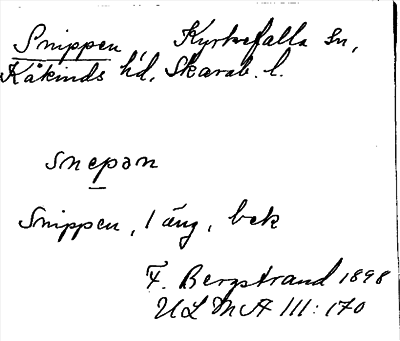 Snippen, Kyrkefalla sn,
Kåkinds hd, Skarab. l.
snepən
Snippen, 1 äng, bek
F. Bergstrand 1898
ULMA 111:170